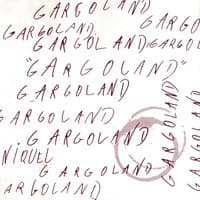 GARGOLAND
GARGOLAND
GARGOLAND
GARGOLAND
GARGOL
"GARGOLAND"
GARGOLAND
GARGOLAND
GARGOLAND
NIQUEL
GARGOLAND
GARGOLAND
GARGOLAND
GARGOLAND